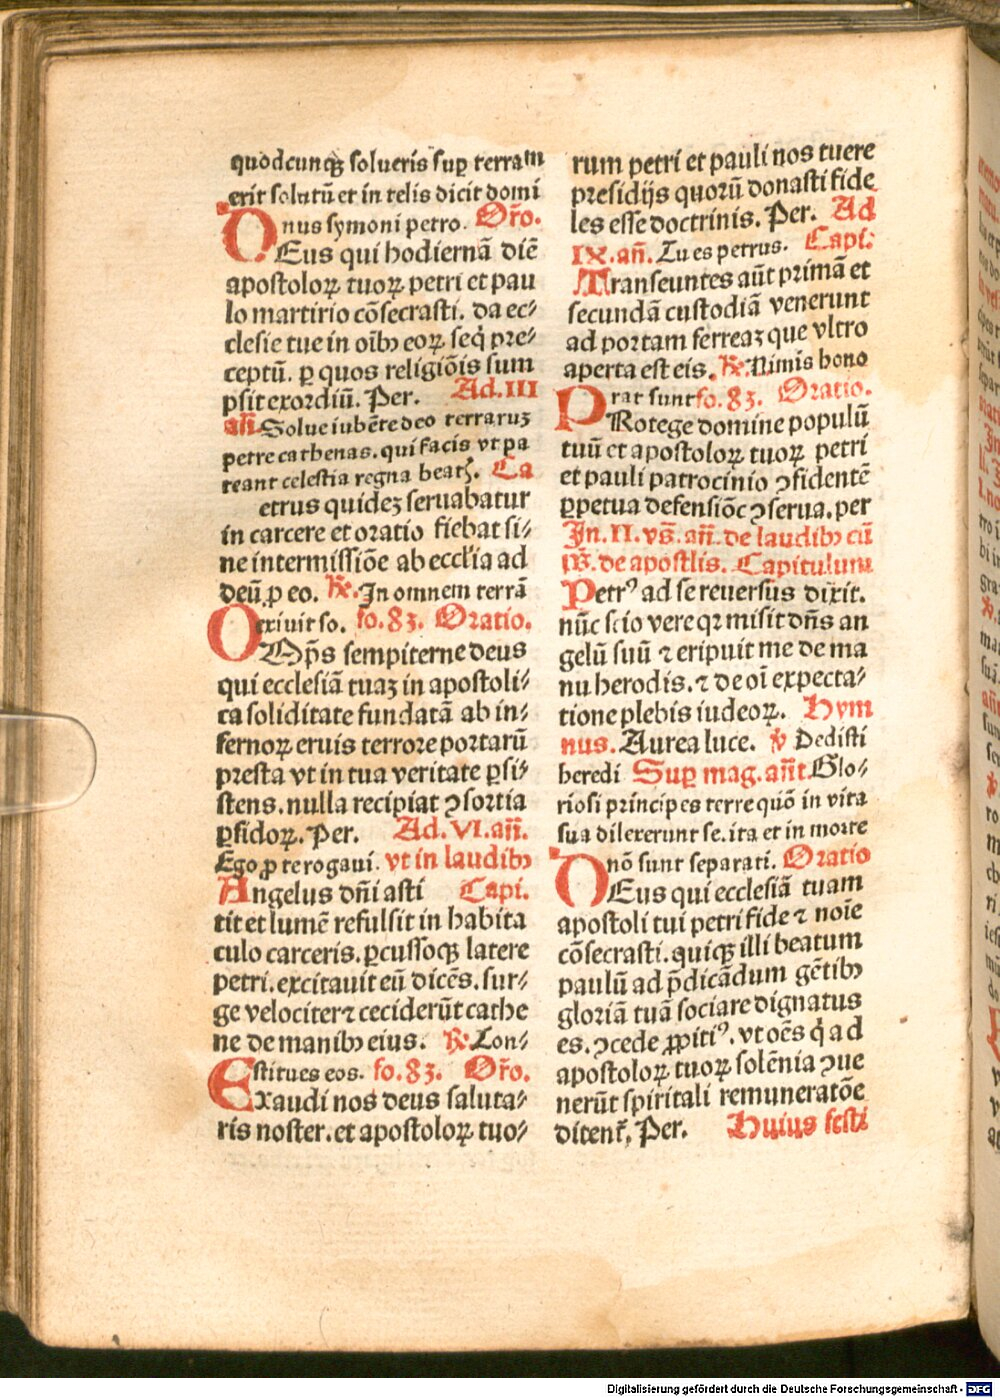 quodcunqꝫ solueris suꝑ terram
erit solutū et in celis dicit domi
nus symoni petro. Or̄o.
DEus qui hodiernā diē
apostoloꝝ tuoꝝ petri et pau
lo martirio cōsecrasti. da ec⸗
clesie tue in oībꝰ eoꝝ seq̇ pre⸗
ceptū. ꝑ quos religiōis sum
psit exordiū. Per. Ad. III
an̄. Solue iubēte deo terraruꝫ
petre cathenas. qui facis vt pa
teant celestia regna beatꝭ. Ca
etrus quideꝫ seruabatur
in carcere et oratio fiebat si⸗
ne intermissiōe ab eccl'ia ad
deū ꝓ eo. ℟. In omnem terrā
exiuit so. fo. 83. Oratio.
OOp̄s sempiterne deus
qui ecclesiā tuaꝫ in apostoli⸗
ca soliditate fundatā ab in⸗
fernoꝝ eruis terrore portarū
presta vt in tua veritate ꝑsi⸗
stens. nulla recipiat ꝯsortia
ꝑfidoꝝ. Per. Ad. VI. an̄.
Ego ꝓ te rogaui. vt in laudibꝰ
Angelus dn̄i asti Capi.
tit et lumē refulsit in habita
culo carceris. ꝑcussoqꝫ latere
petri. excitauit eū dicēs. sur⸗
ge velociter ⁊ ceciderūt cathe
ne de manibꝰ eius. ℟. Con⸗
stitues eos. fo. 83. Or̄o.
Exaudi nos deus saluta⸗
ris noster. et apostoloꝝ tuo⸗
rum petri et pauli nos tuere
presidijs quorū donasti fide
les esse doctrinis. Per. Ad
IX. an̄. Tu es petrus. Capi.
Transeuntes aūt primā et
secundā custodiā venerunt
ad portam ferreaꝫ que vltro
aperta est eis. ℟. Nimis hono
rat sunt fo. 83. Oratio.
PRotege domine populū
tuū et apostoloꝝ tuoꝝ petri
et pauli patrocinio ꝯfidentē
ꝑpetua defensiōe ꝯserua. per
In. II. vs̄. an̄. de laudibꝰ cū
ps̄. de apostlis. Capitulum
Petrꝰ ad se reuersus dixit.
nūc scio vere qꝛ misit dn̄s an
gelū suū ⁊ eripuit me de ma
nu herodis. ⁊ de oī expecta⸗
tione plebis iudeoꝝ. Hym
nus. Aurea luce. ℣ Dedisti
heredi Suꝑ mag. ant̄. Glo⸗
riosi principes terre quō in vita
sua dilexerunt se. ita et in morte
nō sunt separati. Oratio
DEus qui ecclesiā tuam
apostoli tui petri fide ⁊ noīe
cōsecrasti. quiqꝫ illi beatum
paulū ad p̄dicādum gētibꝰ
gloriā tuā sociare dignatus
es. ꝯcede ꝓpitiꝰ. vt oēs q̇ ad
apostoloꝝ tuoꝝ solēnia ꝯue
nerūt spiritali remuneratōe
ditent̄. Per. Huius festi
Digitalisierung gefördert durch die Deutsche Forschungsgemeinschaft - DFG